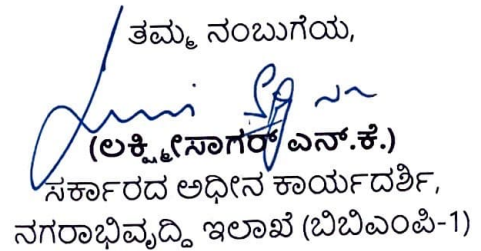 ತಮ್ಮ ನಂಬುಗೆಯ,
(ಲಕ್ಷ್ಮೀಸಾಗರ್ ಎನ್.ಕೆ.)
ಸರ್ಕಾರದ ಅಧೀನ ಕಾರ್ಯದರ್ಶಿ,
ನಗರಾಭಿವೃದ್ಧಿ ಇಲಾಖೆ (ಬಿಬಿಎಂಪಿ-1)